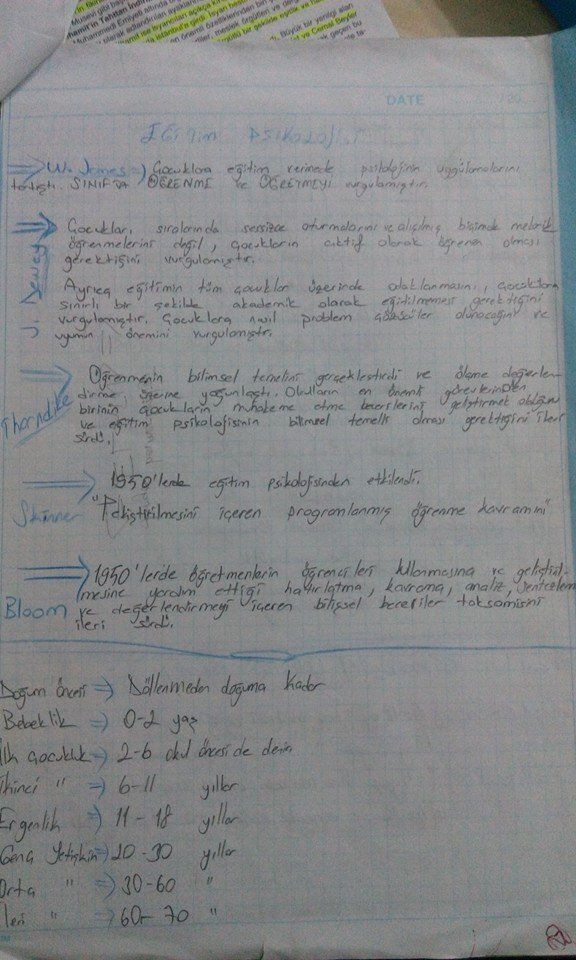 DATE
EĞİTİM PSİKOLOJİSİ
W. James => Çocuklara eğitim vermede psikolojinin uygulamalarını
tartıştı. SINIFTA ÖĞRENME ve ÖĞRETMEYİ vurgulamıştır.
J. Dewey
Çocukları, sıralarında sessizce oturmalarını ve alışılmış biçimde mekanik
öğrenmelerini değil, çocukların aktif olarak öğrenen olması
gerektiğini vurgulamıştır.
Ayrıca eğitimin tüm çocuklar üzerinde odaklanmasını, çocukların
sınırlı bir şekilde akademik olarak eğitilmemesi gerektiğini
vurgulamıştır. Çocuklara nasıl problem çözücüler olunacağını ve
uyumun önemini vurgulamıştır.
Thorndike
Öğrenmenin bilimsel temelini gerçekleştirdi ve ölçme değerlen
dirme üzerine yoğunlaştı. Okulların en önemli görevlerinden
birinin çocukların muhakeme etme becerilerini geliştirmek olduğunu
ve eğitim psikolojisinin bilimsel temelli olması gerektiğini ileri
sürdü.
Skinner
1950'lerde eğitim psikolojisinden etkilendi.
"Pekiştirilmesini içeren programlanmış öğrenme kavramını"
Bloom
1950'lerde öğretmenlerin öğrencileri kullanmasına ve geliştiril-
mesine yardım ettiği hatırlatma, kavrama, analiz, sentezleme
ve değerlendirmeyi içeren bilişsel beceriler taksomisini
ileri sürdü.
Doğum öncesi => Döllenmeden doğuma kadar
Bebeklik => 0-2 yaş
İlk çocukluk => 2-6 okul öncesi de denir
İkinci " => 6-11 yıllar
Ergenlik => 11-18 yıllar
Genç Yetişkin => 20-30 yıllar
Orta " => 30-60 "
İleri " => 60-70 "